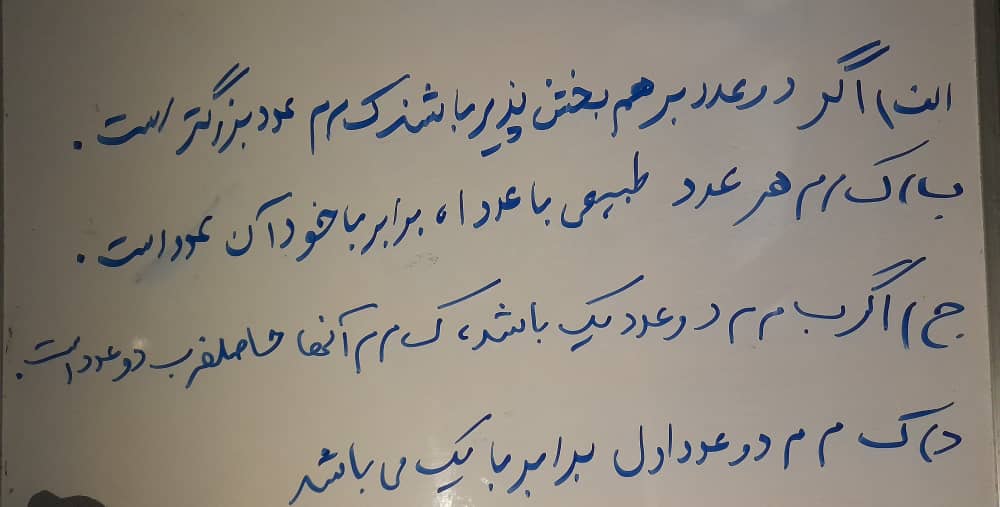 الف) اگر دو عدد بر هم بخش پذیر باشند ک م م عدد بزرگتر است.
ب) ک م م هر عدد طبیعی با عدد ۱، برابر با خود آن عدد است.
ج) اگر ب م م دو عدد یک باشد، ک م م آنها حاصلضرب دو عدد است.
د) ک م م دو عدد اول برابر با یک می باشد